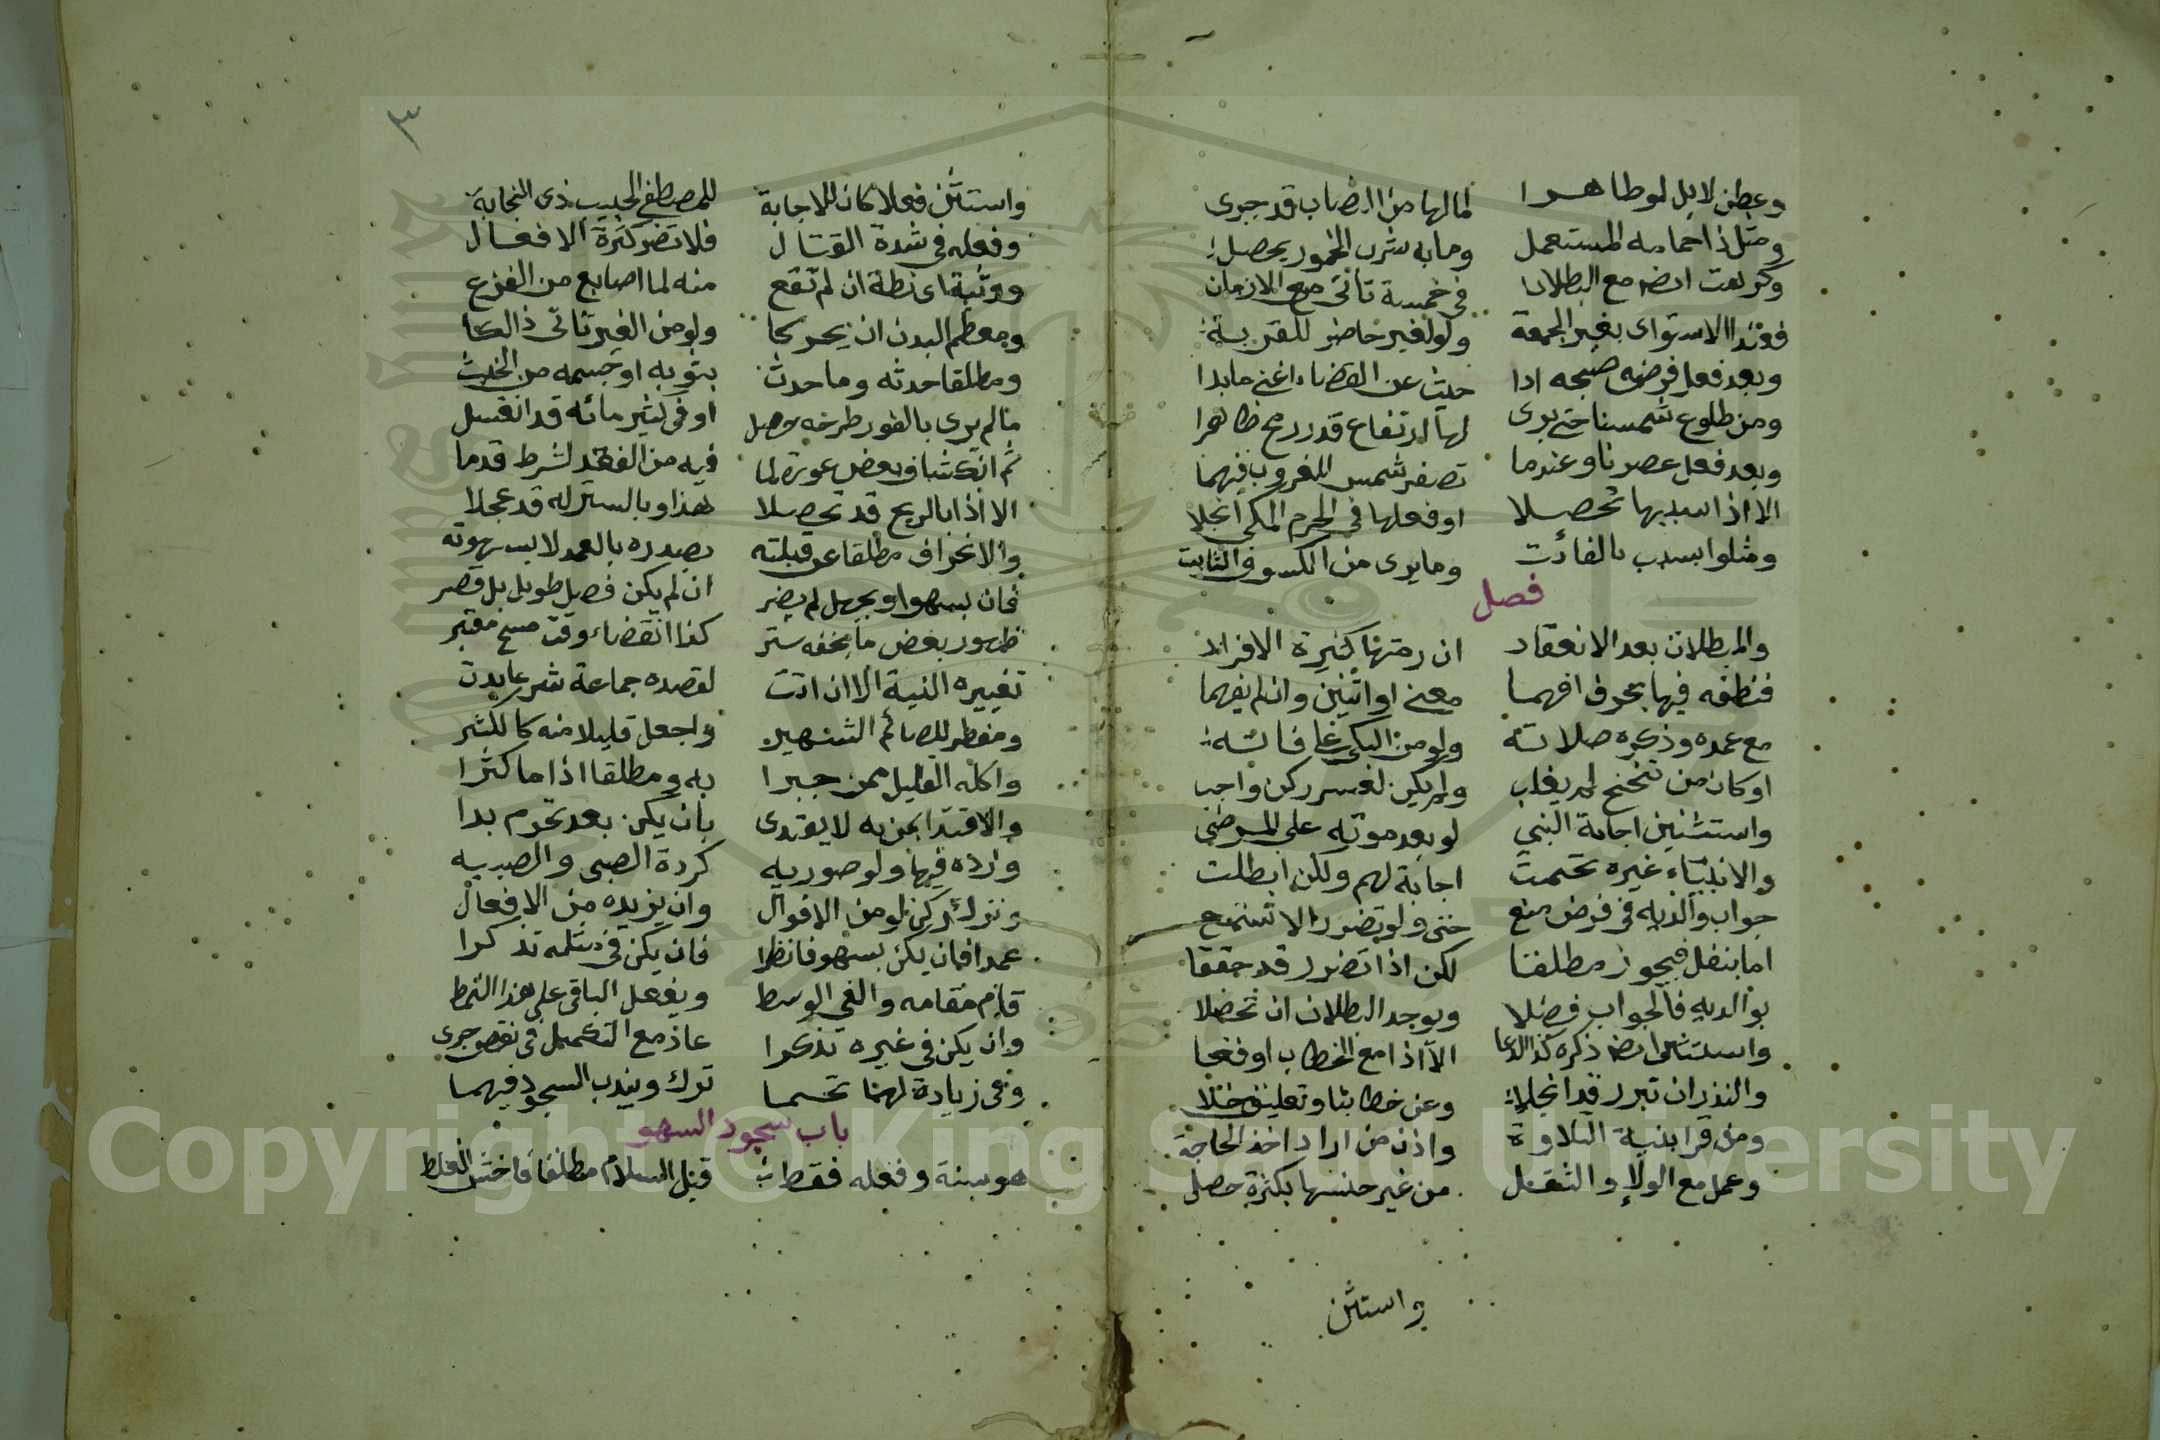 وعطن لابل لو طاهرا لما لها من انصاب قد جرى
ومثل ذا حمامه المستعمل وما به شرب الخمور يحصل
وكرهت ايضا مع البطلان في خمسة تاتي مع الازمان
فعند الاستواى بغير الجمعة ولو لغير حاضر للقربة
وبعد فعل فرضه صبحه اذا حيث عن القضاء اغنى ما بدا
ومن طلوع شمسنا حتى يرى لها ارتفاع قدر رمح ظاهرا
وبعد فعل عصرنا وعندما تصفر شمس للغروب فيهما
الا اذا سببها تحصلا او فعلها في الحرم المكي انجلا
ومثلوا بسبب بالفائت وما يرى من الكسوف الثابت
فصل
والمبطلات بعد الانعقاد ان رمتها كثيرة الافراد
فنطقه فيها بحرف افهما معنى او اثنين وان لم يفهما
مع عمده وذكره صلاته ولو من البكى
او كان من تنحنح لم يغلب ولم يكن لعسر ركن واجب
واستثنين اجابة النبي لو بعد موته على المرضي
والانبياء غيره تحتمت اجابة لهم ولكن ابطلت
جواب والديه في فرض منع حتى ولو تضررا لا تستمع
اما بنفل فيجوز مطلقا لكن اذا تضرر قد حققا
بوالديه فالجواب فضلا ويوجد البطلان ان تحصلا
واستثنى ايضا ذكره كذا الدعا الا اذا مع الخطاب اوقعا
والنذر ان تبرر قد انجلا وعن خطابنا وتعليق خلا
ومن قرا بنية التلاوة واذن من اراد اخذ الحاجة
وعمل مع الولاء والثقل من غير جنسها بكثرة حصل
واستثن
٣
واستثن فعلا كان للاجابة للمصطفى الحبيب ذي النجابة
وفعله في شدة القتال فلا تضر كثرة الافعال
ووثبة اي نطة ان لم تقع منه لما اصابع من الفزع
ومعظم البدن ان يحركا ولو من الغير تاتى ذالكا
ومطلقا حدثه وما حدث بثوبه او جسمه من الخبث
ما لم يرى بالفور طرحه حصل او في كثير مائه قد انغسل
ثم انكشاف بعض عورة لما فيه من الفقد لشرط قدما
الا اذا بالريح قد تحصلا هذا وبالستر له قد عجلا
والانحراف مطلقا عن قبلته بصدره بالعمد لا بسهوته
فان بسهو او بجهل لم يضر ان لم يكن فصل طويل بل قصر
ظهور بعض ما بخفه ستر كذا انقضاء وقت مسح معتبر
تغييره النية الا ان اتت لقصده جماعة شرعا بدت
ومفطر للصائم الشهير واجعل قليلا منه كالكثير
واكله القليل ممن جبرا به ومطلقا اذا ما كثرا
والاقتدا بمن به لا يقتدى بان يكن بعد تحرم بدا
وردة فيها ولو صوريه كردة الصبي والصبيه
وترك ركن لو من الاقوال وان يزيده من الافعال
عمدا فان يكن بسهو فانظرا فان يكن في مثله تذكرا
قام مقامه والغي الوسط ويفعل الباقي على هذا النمط
وان يكن في غيره تذكرا عاد مع التكميل في نقص جرى
وفي زيادة لهنا تحسما ترك ويندب السجود فيهما
باب سجود السهو
هو سنة وفعله فقط قبل السلام مطلقا فاخش الغلط
Copyright © King Saud University